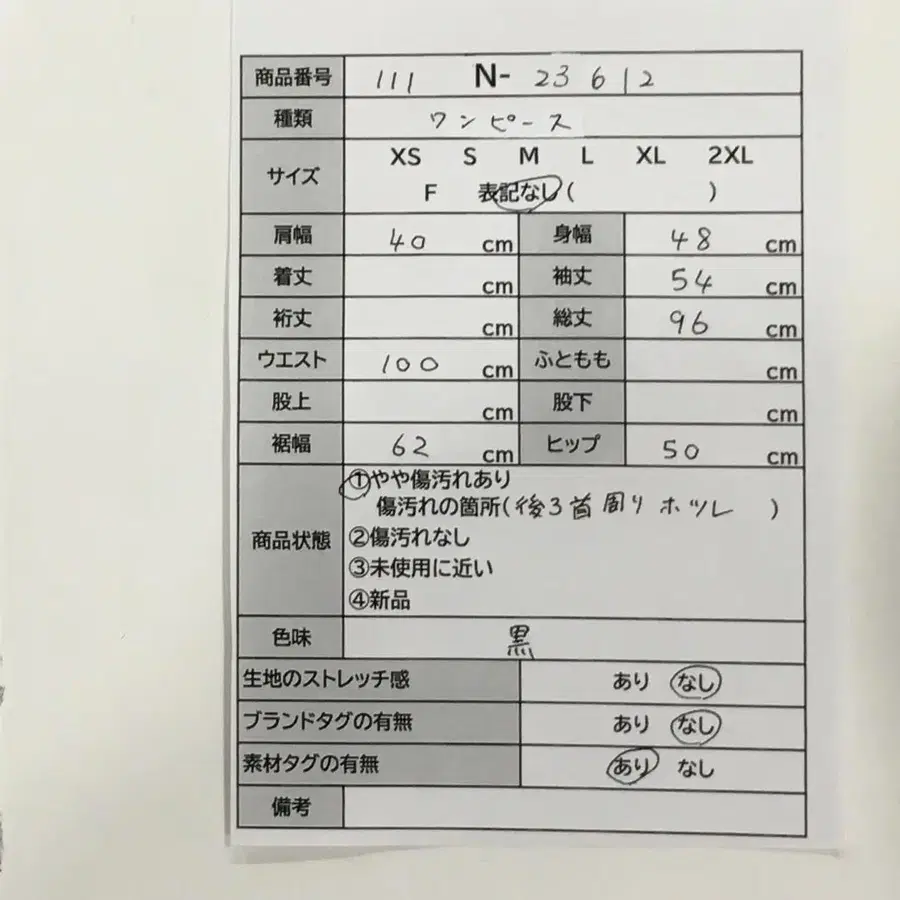 商品番号 111 N- 23612
種類 ワンピース
サイズ XS S M L XL 2XL
F 表記なし( )
肩幅 40 cm 身幅 48 cm
着丈 cm 袖丈 54 cm
裄丈 cm 総丈 96 cm
ウエスト 100 cm ふともも cm
股上 cm 股下 cm
裾幅 62 cm ヒップ 50 cm
商品状態 ①やや傷汚れあり
傷汚れの箇所(後ろ首周りホツレ )
②傷汚れなし
③未使用に近い
④新品
色味 黒
生地のストレッチ感 あり なし
ブランドタグの有無 あり なし
素材タグの有無 あり なし
備考